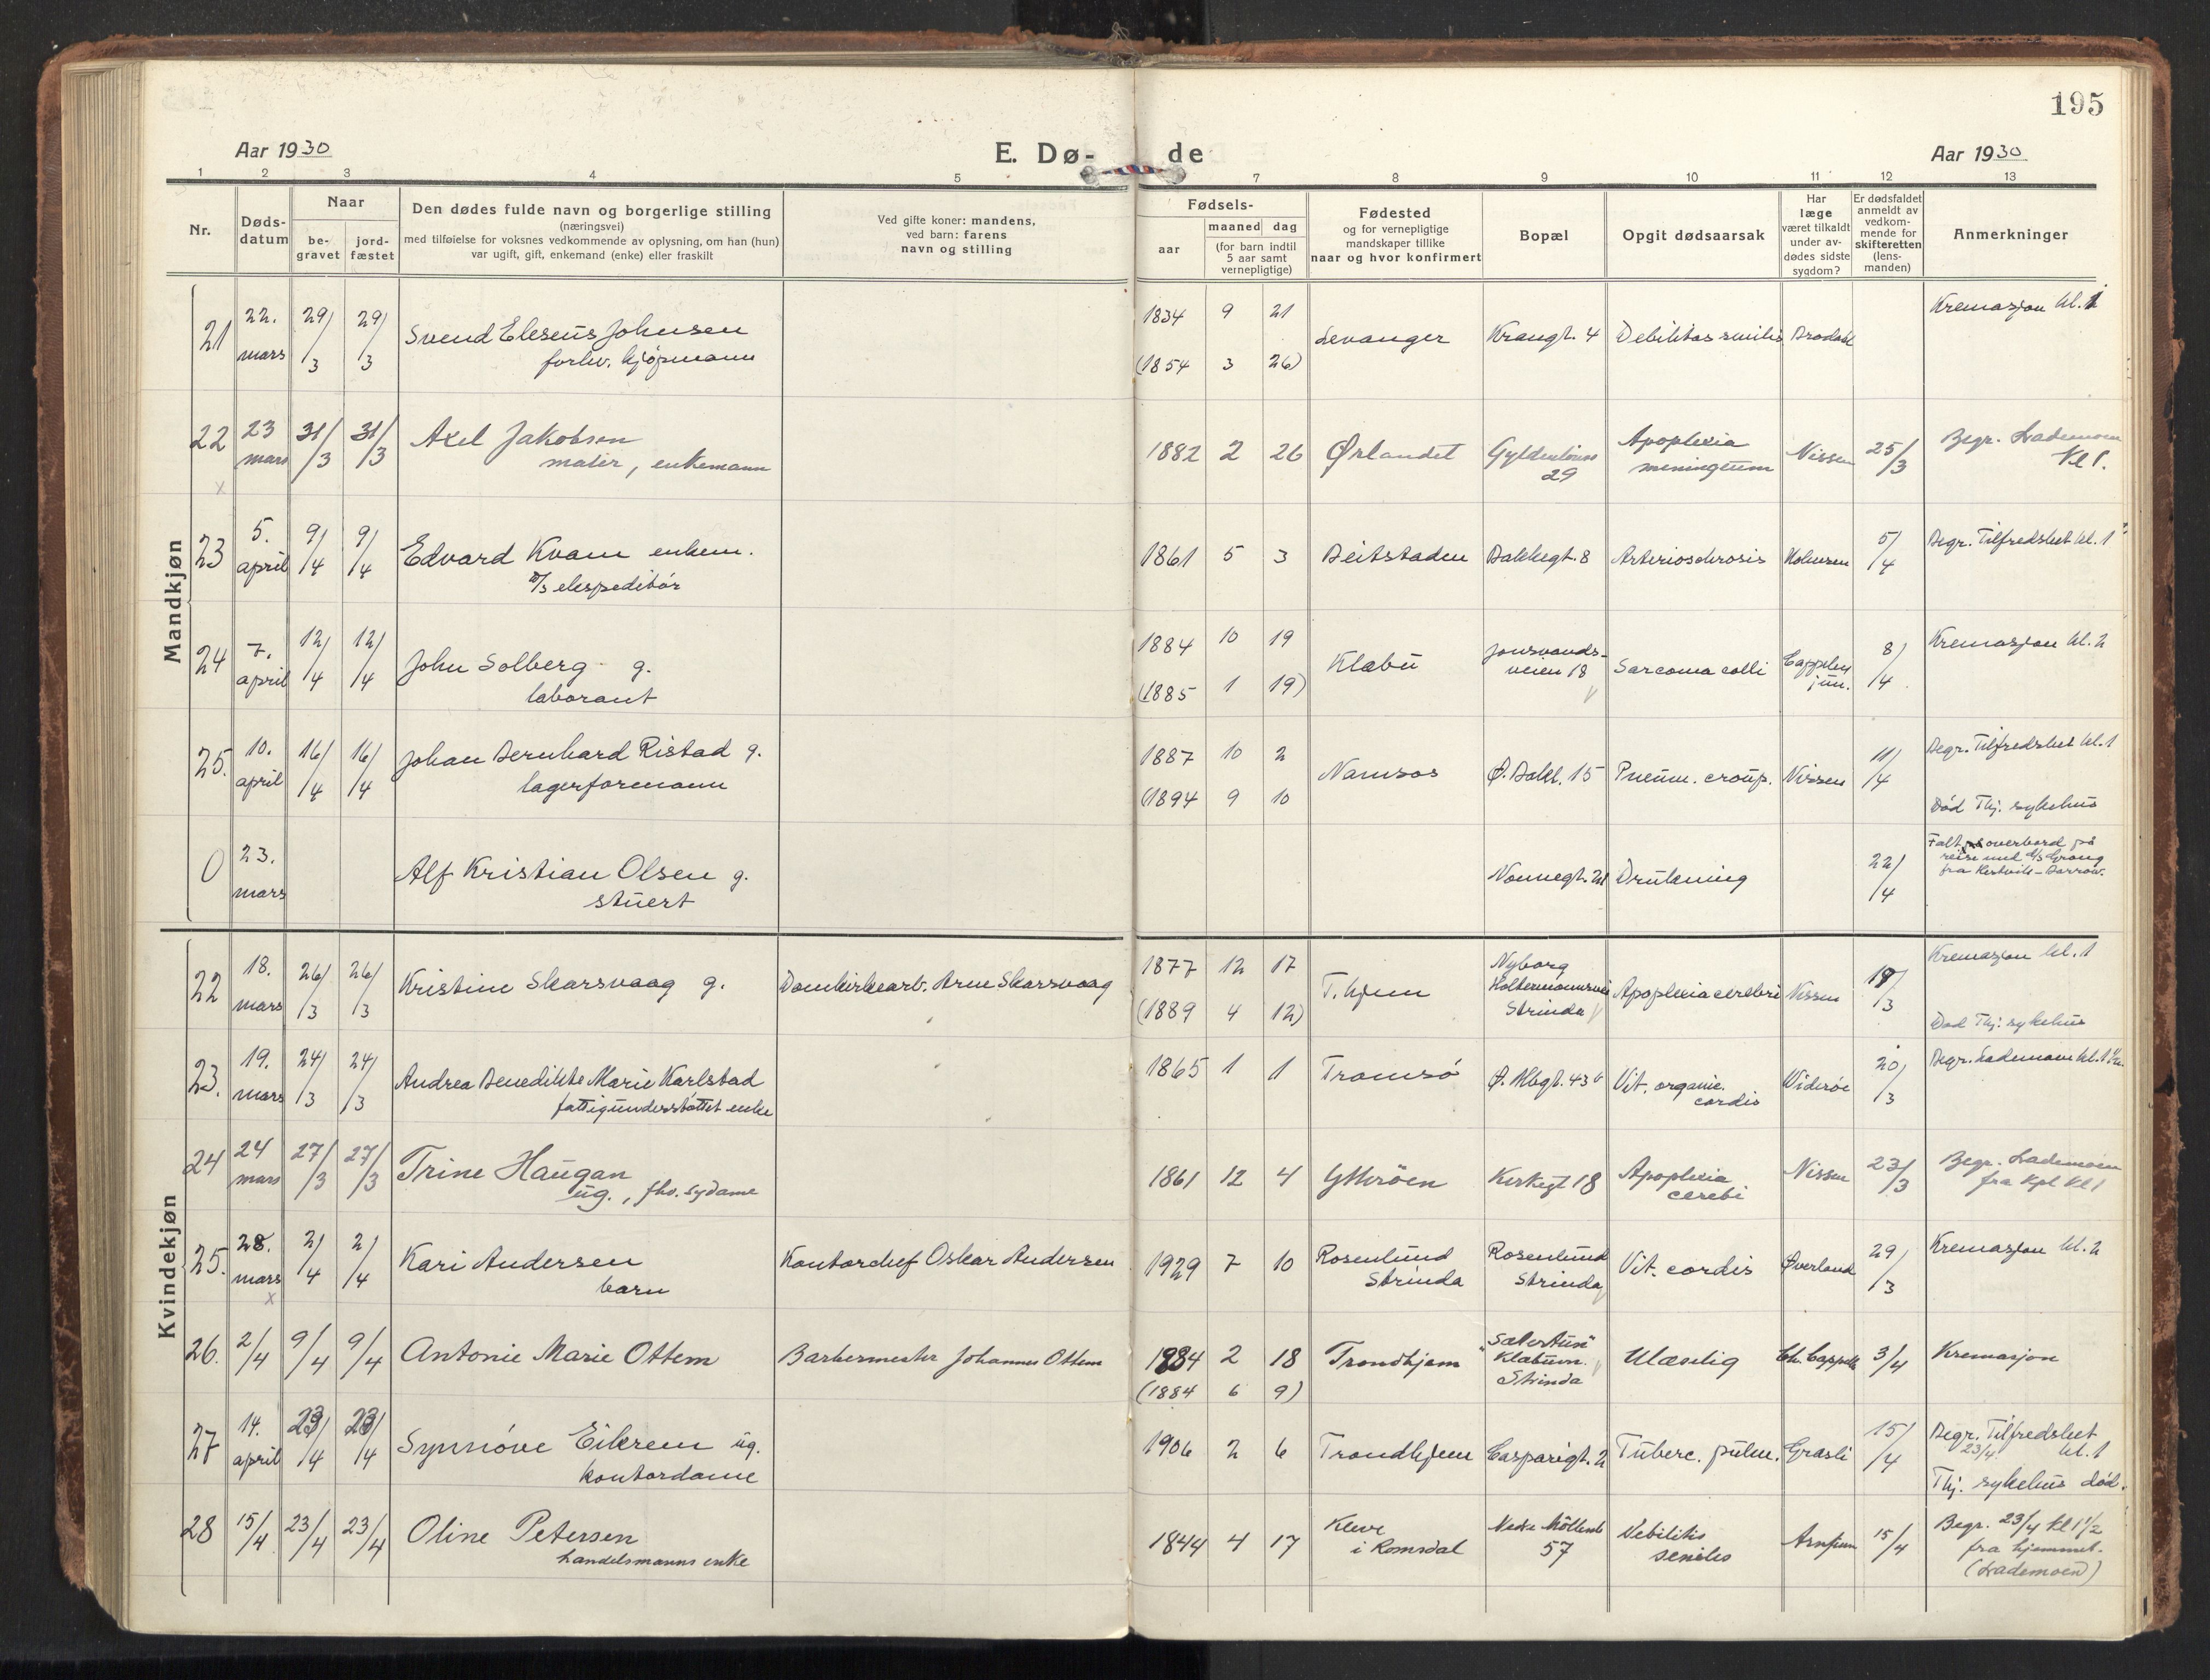 195
Aar 1930
E. Dø- de
Aar 1930
1 2 3 4 5 7 8 9 10 11 12 13
Nr.
Døds-
datum
Naar
be-
gravet
jord-
fæstet
Den dødes fulde navn og borgerlige stilling
(næringsvei)
med tilføielse for voksnes vedkommende av oplysning, om han (hun)
var ugift, gift, enkemand (enke) eller fraskilt
Ved gifte koner: mandens,
ved barn: farens
navn og stilling
Fødsels-
aar
maaned dag
(for barn indtil
5 aar samt
vernepligtige)
Fødested
og for vernepligtige
mandskaper tillike
naar og hvor konfirmert
Bopæl
Opgit dødsaarsak
Har
læge
været tilkaldt
under av-
dødes sidste
sygdom?
Er dødsfaldet
anmeldt av
vedkom-
mende for
skifteretten
(lens-
manden)
Anmerkninger
Mandkjøn
21 22. mars 29/3 29/3 Svend Eleseus Johnsen
forhv. kjøpmann
1834 9 21
(1854 3 26)
Levanger Krangt. 4 Debilitas senilis
Kremasjon kl. 1
22 23 mars 31/3 31/3 Axel Jakobsen
maler, enkemann
1882 2 26 Ørlandet Gyldenløves 29
Apoplexia
meningeum
Nissen 25/3
Begr. Lademoen
Kl 1.
23 5. april 9/4 9/4 Edvard Kvam enkem.
m/s ekspeditør
1861 5 3 Beitstaden Bakkegt. 8 Arteriosclerosis Holmsen 5/4
Begr. Tilfredshet kl. 1
24 7. april 12/4 12/4 John Solberg g.
laborant
1884 10 19
(1885 1 19)
Klæbu
Jonsvands-
veien 18
Sarcoma colli
Cappelen
jun.
8/4
Kremasjon kl. 2
25. 10. april 16/4 16/4 Johan Bernhard Ristad g.
lagerformann
1887 10 2
(1894 9 10
Namsos Ø. Bakl. 15 Pneum. croup. Nissen 11/4
Begr. Tilfredshet kl. 1
Død Thj. sykehus
0 23. mars Alf Kristian Olsen g.
stuert
Nonnegt. 21 Drukning 22/4
Falt overbord på
reise med d/s Grong
fra
Kvindekjøn
22 18. mars 26/3 26/3 Kristine Skarsvaag g. Domkirkearb. Arne Skarsvaag
1877 12 17
(1889 4 12)
T.hjem
Nyborg
Holtermannsvei
Strinda
Apoplexia cerebri Nissen 19/3
Kremasjon kl. 1
Død Thj. sykehus
23. 19. mars 24/3 24/3 Andrea Benedikte Marie Karlstad
fattigunderstøttet enke
1865 1 1 Tromsø Ø. Mbgt. 43
Vit. organic.
cordis
Widerøe 20/3
Begr. Lademoen kl. 1
24 24 mars 27/3 27/3 Trine Haugan
ug., fhv. sydame
1861 12 4 Ytterøen Kirkegt 18
Apoplexia
cerebi
Nissen 23/3
Begr. Lademoen
fra Kpl Kl 1
25. 28. mars 2/4 2/4 Kari Andersen
barn
Kontorchef Oskar Andersen
1929 7 10
Rosenlund
Strinda
Rosenlund
Strinda
Vit. cordis Øverland 29/3
Kremasjon kl. 2
26. 2/4 9/4 9/4 Antonie Marie Ottem Barbermester Johannes Ottem
1884 2 18
(1884 6 9)
Trondhjem
Strinda
Ulæselig Chr. Cappelen 3/4 Kremasjon
27 14. april 23/4 23/4 Synnøve Eikrem ug.
kontordame
1906 2 6 Trondhjem Casparigt. 2 Tuberc. pulm. Grasli 15/4
Begr. Tilfredshet
23/4 kl. 1
Thj. sykehus død.
28 15/4 23/4 23/4 Oline Petersen
handelsmanns enke
1844 4 17
Kleve
i Romsdal
Nedre Møllenb
57
Debilitis
senilis
15/4
Begr. 23/4 kl 1 1/2
fra hjemmet.
(Lademoen)